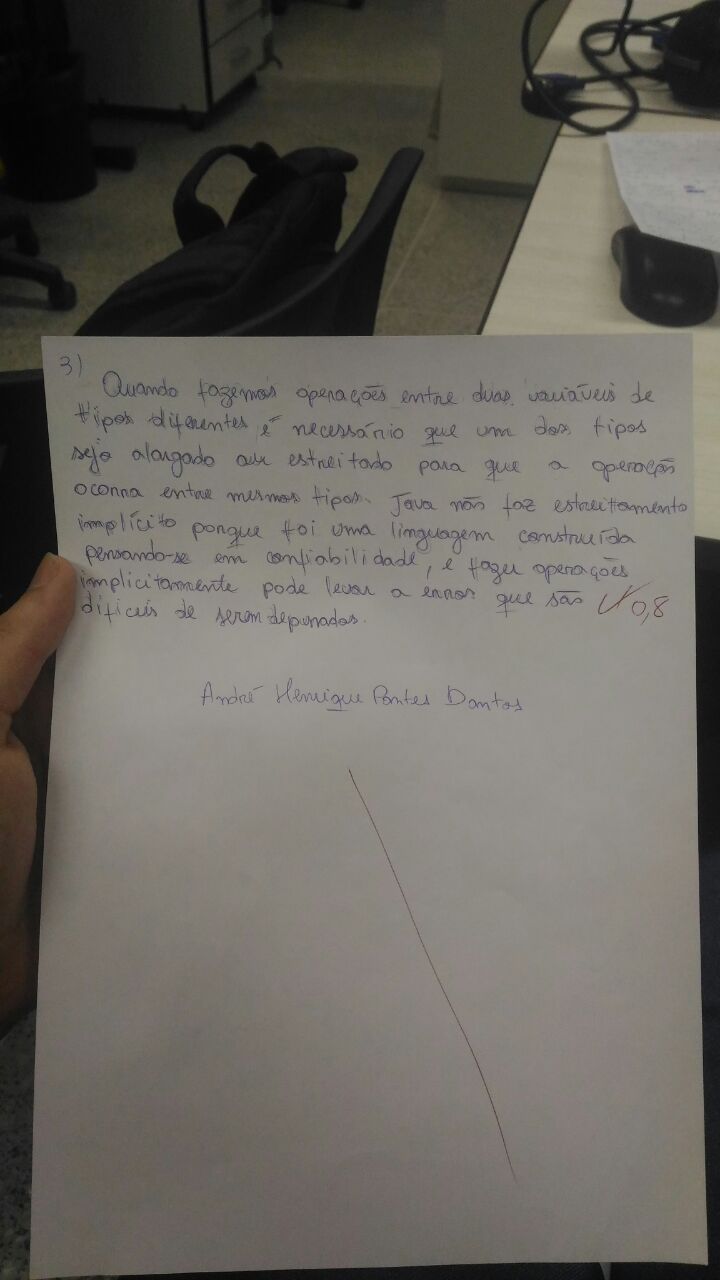 3)
Quando fazemos operações entre duas variáveis de
tipos diferentes é necessário que um dos tipos
seja alargado ou estreitado para que a operação
ocorra entre mesmos tipos. Java não faz estreitamento
implícito porque foi uma linguagem construída
pensando-se em confiabilidade, e fazer operações
implicitamente pode levar a erros que são
difíceis de serem depurados.
0,8
André Henrique Pontes Dantas